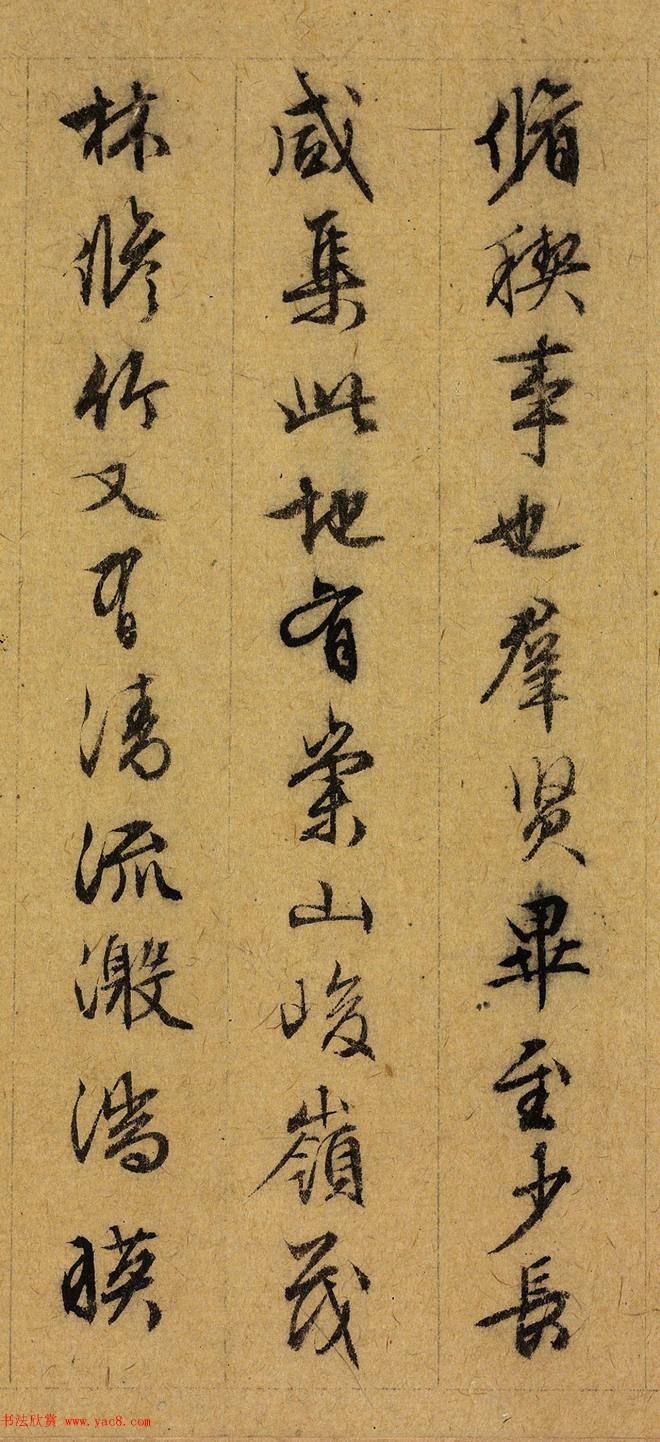 脩稧事也羣贤畢至少長
咸集此地有崇山峻嶺茂
林脩竹又有清流激湍暎
书法欣赏 www.yac8.com